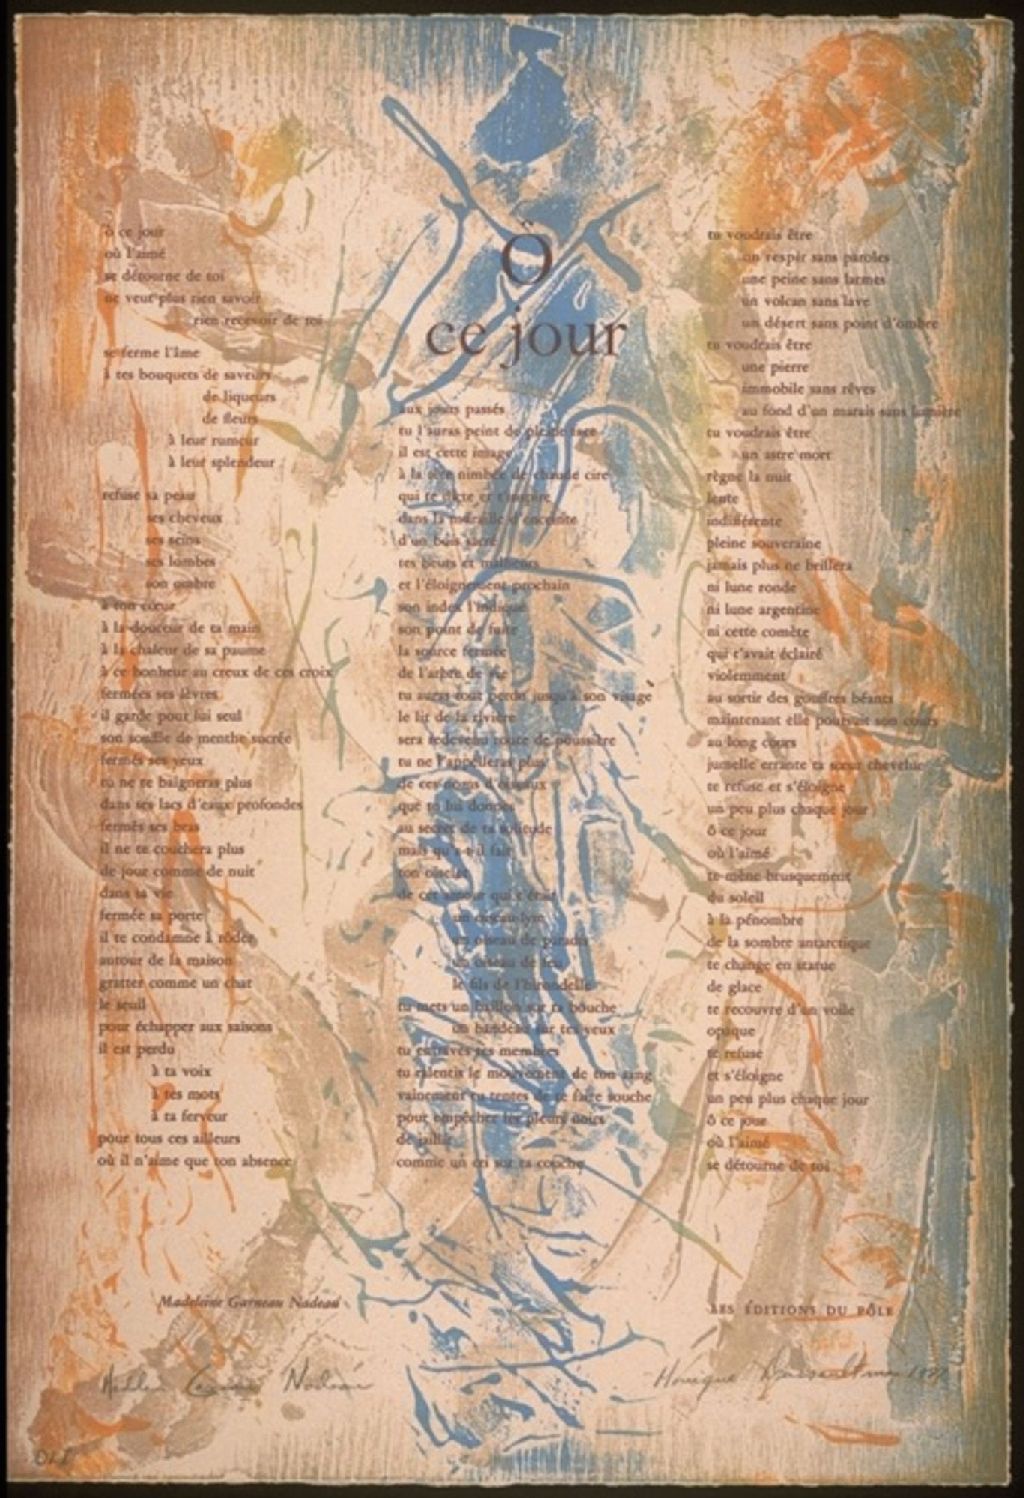 Ô
ce jour
ô ce jour
où l'aimé
se détourne de toi
ne veut plus rien savoir
rien recevoir de toi
se ferme l'âme
à tes bouquets de saveurs
de liqueurs
de fleurs
à leur rumeur
à leur splendeur
refuse sa peau
ses cheveux
ses seins
ses lombes
son ombre
à ton cœur
à la douceur de ta main
à la chaleur de sa paume
à ce bonheur au creux de ces croix
fermées ses lèvres
il garde pour lui seul
son souffle de menthe sucrée
fermés ses yeux
tu ne te baigneras plus
dans ses lacs d'eaux profondes
fermés ses bras
il ne te couchera plus
de jour comme de nuit
dans sa vie
fermée sa porte
il te condamne à rôder
autour de la maison
gratter comme un chat
le seuil
pour échapper aux saisons
il est perdu
à ta voix
à tes mots
à ta ferveur
pour tous ces ailleurs
où il n'aime que ton absence
aux jours passés
tu l'auras peint de pleine face
il est cette image
à la tête nimbée de chaude cire
qui te dicte et t'inspire
dans la muraille d'enceinte
d'un bois sacré
tes heurs et malheurs
et l'éloignement prochain
son index l'indique
son point de fuite
la source fermée
de l'arbre de vie
tu auras tout perdu jusqu'à son visage
le lit de la rivière
sera redevenu route de poussière
tu ne l'appelleras plus
de ces noms d'oiseaux
que tu lui donnes
au secret de ta solitude
mais qu'a-t-il fait
ton oiselet
de cet amour qui t'était
un oiseau-lyre
un oiseau de paradis
un oiseau de feu
le fils de l'hirondelle
tu mets un bâillon sur ta bouche
un bandeau sur tes yeux
tu entraves tes membres
tu ralentis le mouvement de ton sang
vainement tu tentes de te faire souche
pour empêcher les pleurs noirs
de jaillir
comme un cri sur ta couche
tu voudrais être
un respir sans paroles
une peine sans larmes
un volcan sans lave
un désert sans point d'ombre
tu voudrais être
une pierre
immobile sans rêves
au fond d'un marais sans lumière
tu voudrais être
un astre mort
règne la nuit
lente
indifférente
pleine souveraine
jamais plus ne brillera
ni lune ronde
ni lune argentine
ni cette comète
qui t'avait éclairé
violemment
au sortir des gouffres béants
maintenant elle poursuit son cours
au long cours
jumelle errante ta sœur chevelue
te refuse et s'éloigne
un peu plus chaque jour
ô ce jour
où l'aimé
te mène brusquement
du soleil
à la pénombre
de la sombre antarctique
te change en statue
de glace
te recouvre d'un voile
opaque
te refuse
et s'éloigne
un peu plus chaque jour
ô ce jour
où l'aimé
se détourne de toi
Madeleine Garneau Nadeau
LES ÉDITIONS DU PÔLE
Nadeau
Monique